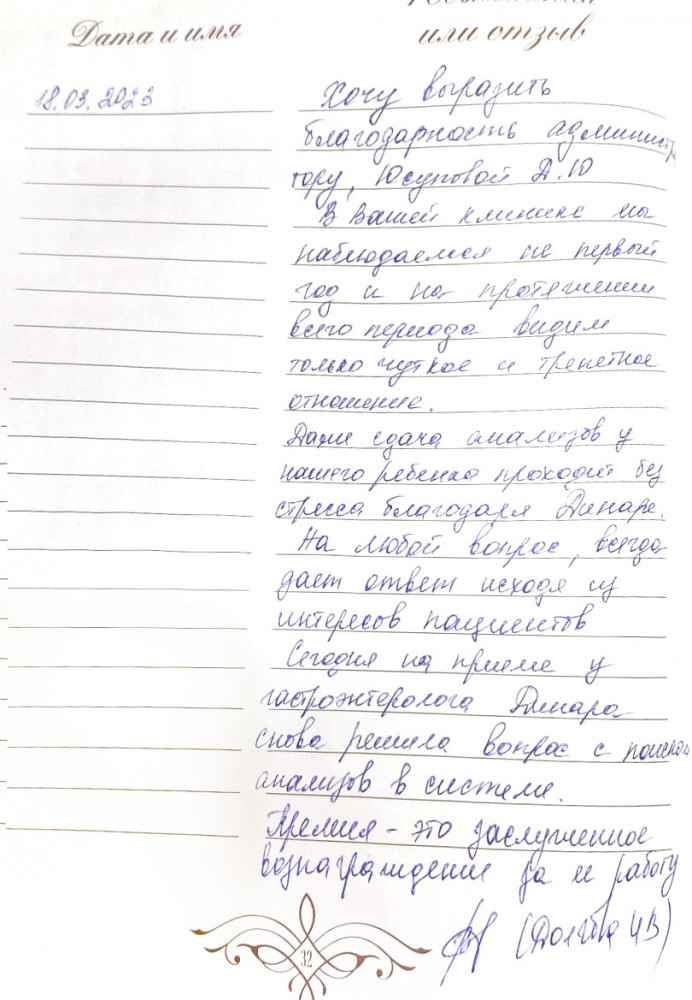 Дата и имя
или отзыв
18.03.2023
Хочу выразить
благодарность администра
тору, Юсуповой Д.Ю
В Вашей клинике мы
наблюдаемся не первый
год и на протяжении
всего периода видим
только чуткое и трепетное
отношение.
Даже сдача анализов у
нашего ребенка проходит без
стресса благодаря Динаре.
На любой вопрос, всегда
дает ответ исходя из
интересов пациентов
Сегодня на приеме у
гастроэнтеролога Динара
снова решила вопрос с поиском
анализов в системе.
Премия - это заслуженное
вознаграждение за ее работу
(Долгова ЧВ)
32